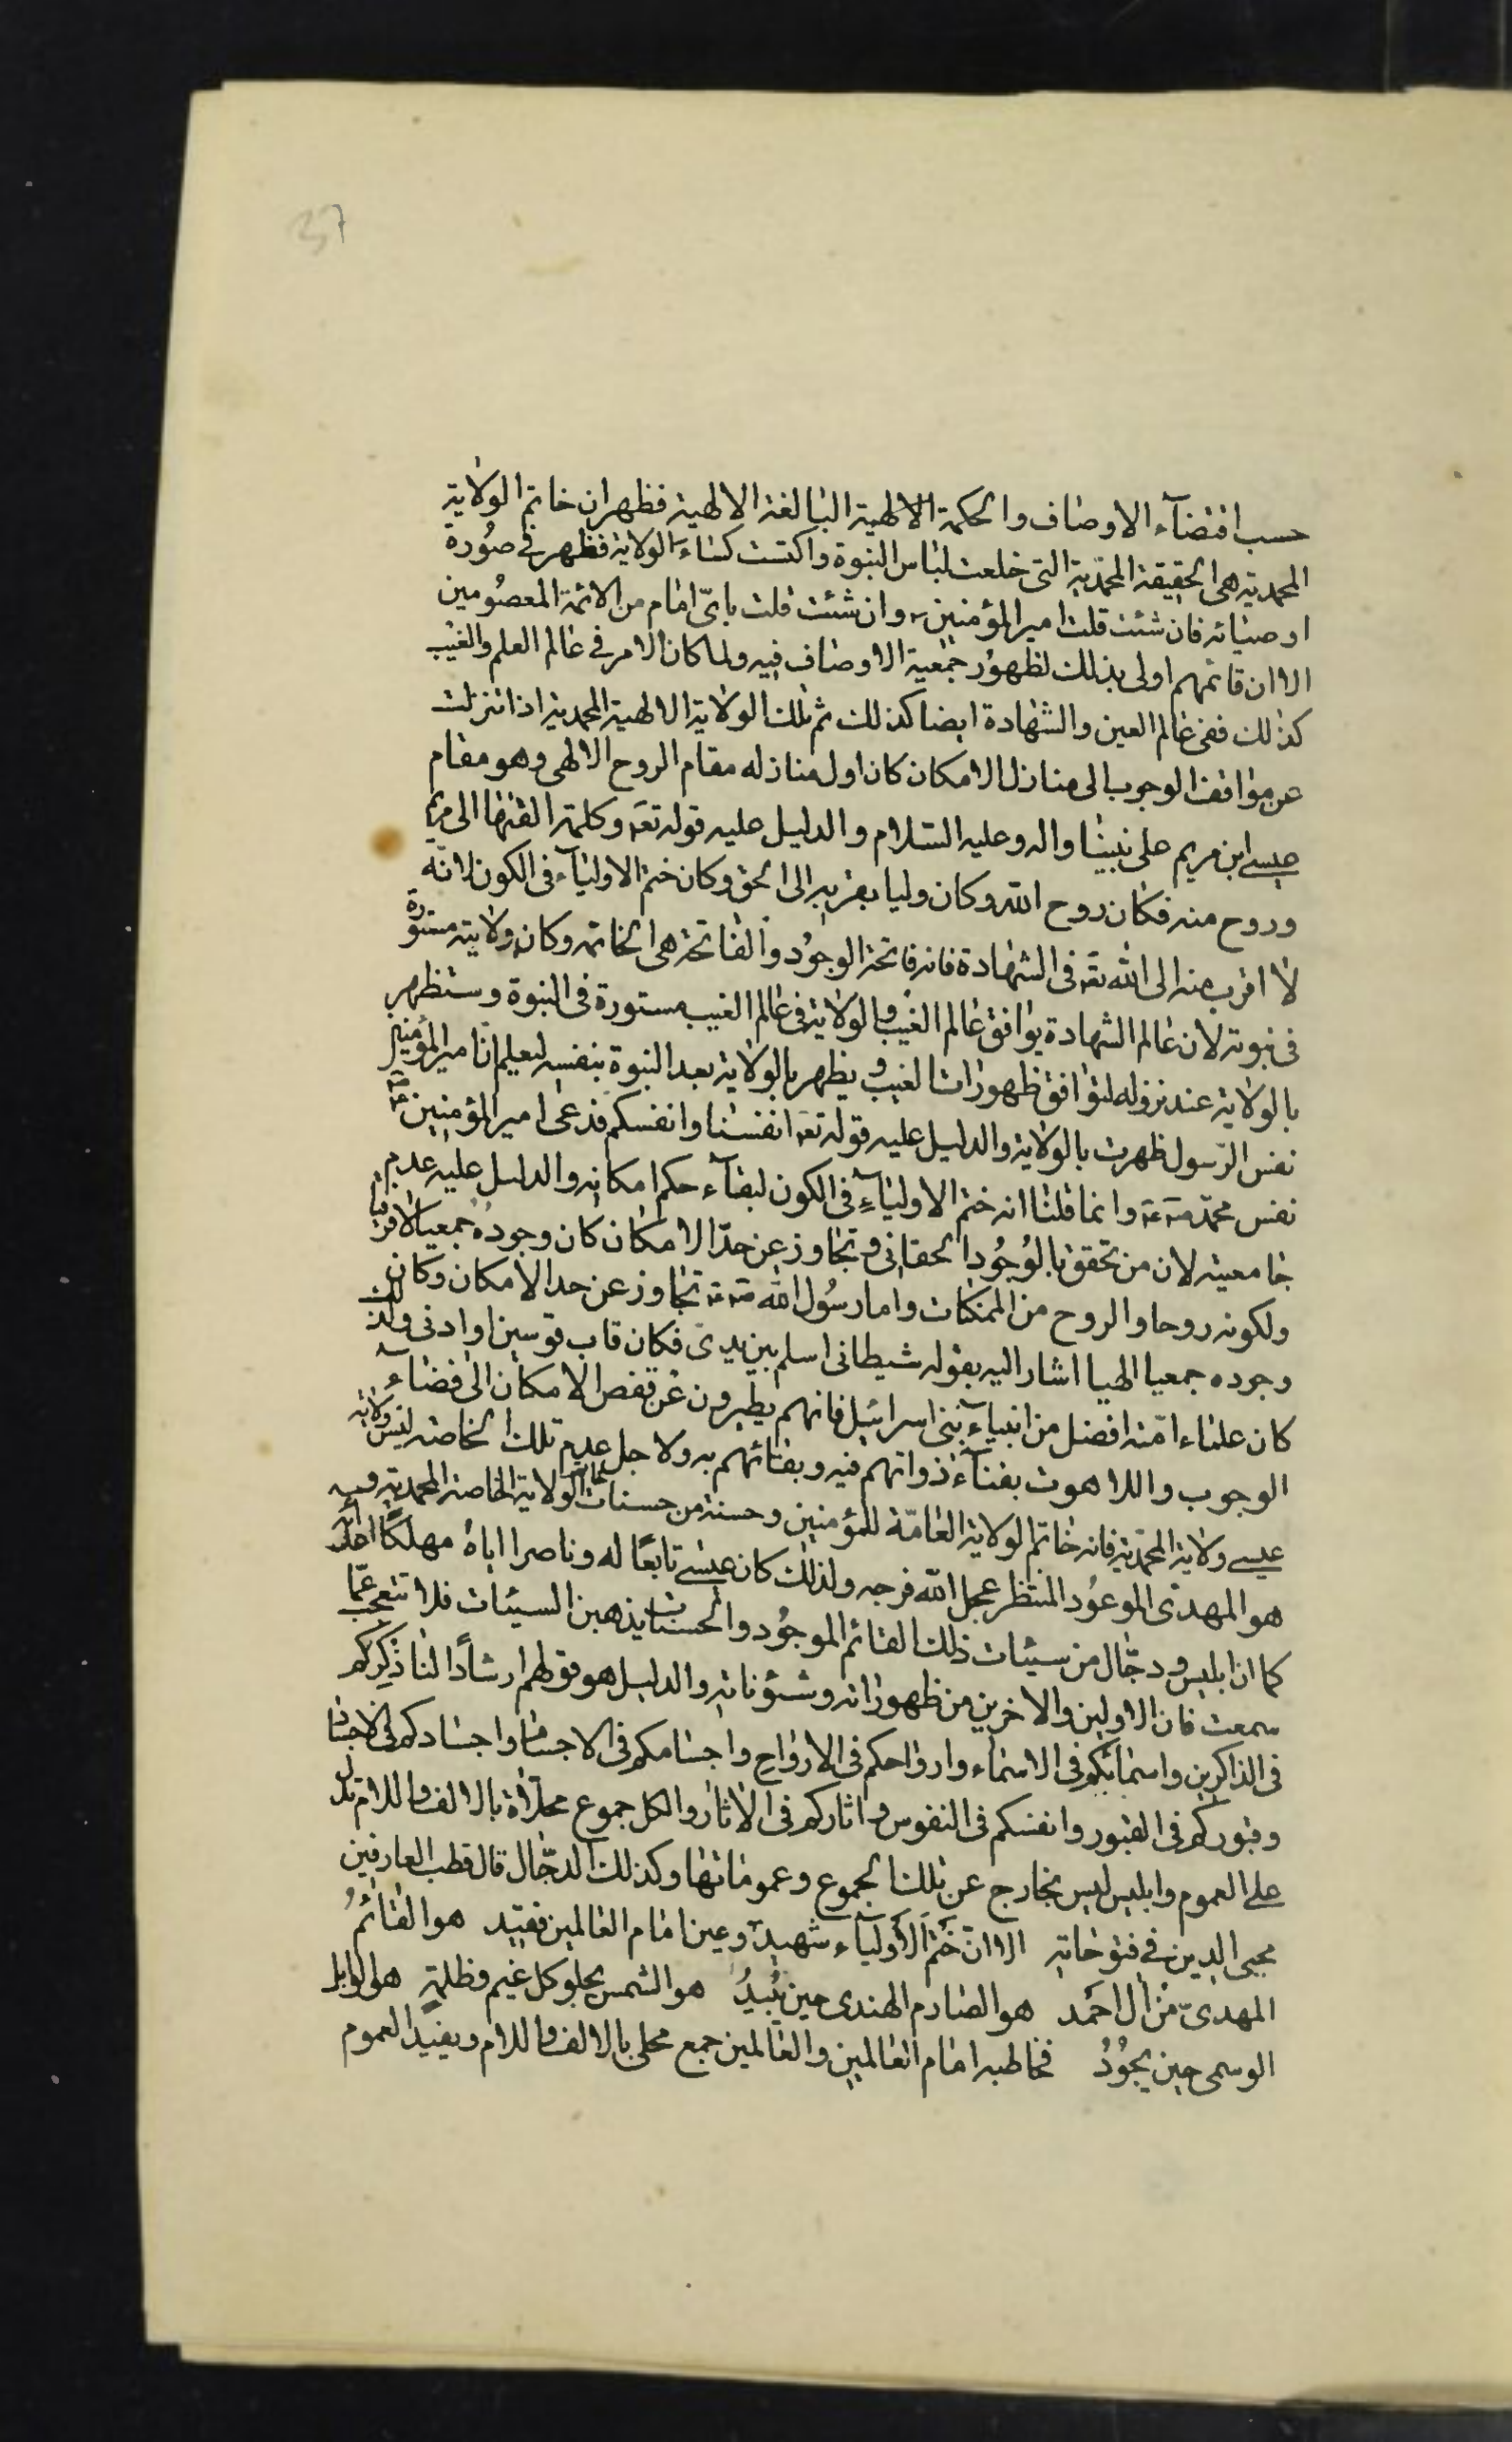 37
حسب اقتضآء الاوصاف والحكمة الالهية البالغة الالهية فظهر ان خاتم الولاية
المحمدية هى الحقيقة المحمّدية التى خلعت لباس النبوة واكتست كساء الولاية فظهر فى صُورة
اوصيائه فان شئت قلت امير المؤمنين وان شئت قلت باىّ امام من الائمة المعصُومين
الا ان قائمهم اولى بذلك لظهوُر جمعية الاوصاف فيه ولما كان الامر فى عالم العلم والغيب
كذلك ففى عالم العين والشهادة ايضا كذلك ثم تلك الولاية الالهية المحمدية اذا تنزلت
عن مواقف الوجوب الى منازل الامكان كان اول منازله مقام الروح الالهى وهو مقام
عيسى ابن مريم على نبينا واله وعليه السّلام والدليل عليه قوله تعه وكلمته القيٰها الى مريم
وروح منه فكان روح الله وكان وليا بقربه الى الحق وكان ختم الاوليآء فى الكون لانّه
لا اقرب منه الى الله تعه فى الشهادة فانه فاتحة الوجوُد والفاتحة هى الخاتمه وكان ولايته مستورة
فى نبوته لان عالم الشهادة يوافق عالم الغيب والولاية فى عالم الغيب مستورة فى النبوة وستظهر
بالولاية عند نزوله لتوافق ظهورات الغيب ويظهر بالولاية بعد النبوة بنفسه ليعلم انّ امير المؤمنين
نفس الرّسول ظهرت بالولاية والدليل عليه قوله تعه انفسنا وانفسكم فدعى امير المؤمنين
نفس محمّد وانما قلنا انه ختم الاوليآءِ فى الكون لبقآء حكم امكانه والدليل عليه عدم
جامعيته لان من تحقق بالوُجُود الحقانى وتجاوز عن حدّ الامكان كان وجودهُ جمعيا لا فرقيا
ولكونه روحا والروح من الممكنات واما رسُول الله تجاوز عن حد الامكان وكان
وجوده جمعيا الهيا اشار اليه بقوله شيطانى اسلم بين يدى فكان قاب قوسين او ادنى ولذلك
كان علماء امّته افضل من انبيآء بنى اسرائيل فانهم يطيرون عن قفص الامكان الى فضاء
الوجوب واللاهوت بفنآء ذواتهم فيه وبقائهم به ولاجل عدم تلك الخاصّه ليس ولاية
عيسى ولاية المحمّدية فانه خاتم الولاية العامّة للمؤمنين وحسنة من حسنات خاتم الولاية الخاصة المحمدية وبه
هو المهدى الموعوُد المنتظر عجل الله فرجه ولذلك كان عيسى تابعًا له وناصرا اياهُ مهلكًا اعدائه
كما ان ابليس ودجّال من سيئات ذلك القائم الموجوُد والحسنات يذهبن السيئات فلا تتعجب عمّا
سمعت فان الاولين والاخرين من ظهوراته وشئوناته والدليل هو قولهم ارشادًا لنا ذِكركم
فى الذاكرين واسمائكم فى الاسماء وارواحكم فى الارواح واجسامكم فى الاجسام واجسادكم فى الاجساد
وقبوركم فى القبور وانفسكم فى النفوس واثاركم فى الاثار والكل جموع محلاة بالالف واللام تدل
على العموم وابليس ليس بخارج عن تلك الجموع وعموماتها وكذلك الدجّال قال قطب العارفين
محيى الدين فى فتوحاته الا انّ خَتْمَ الاَولياء شهيد وعين امام العالمين فقيد هو القائمُ
المهدىّ من ال احمَد هو الصارم الهندى حين يُبيدُ هو الشمس يجلو كل غيم وظلمةٍ هو الوابل
الوسمى حين يجُوُدُ فخاطبه امام العالمين والعالمين جمع محلى بالالف واللام ويفيد العموم